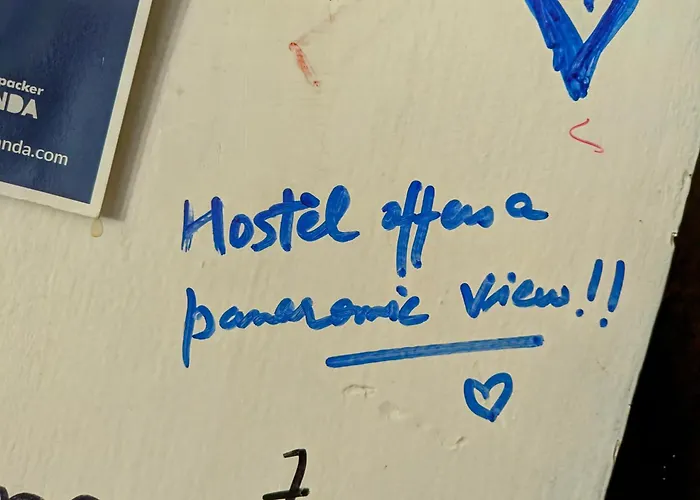 packer
NDA
nda.com
Hostel offers a
panoramic view!!
7